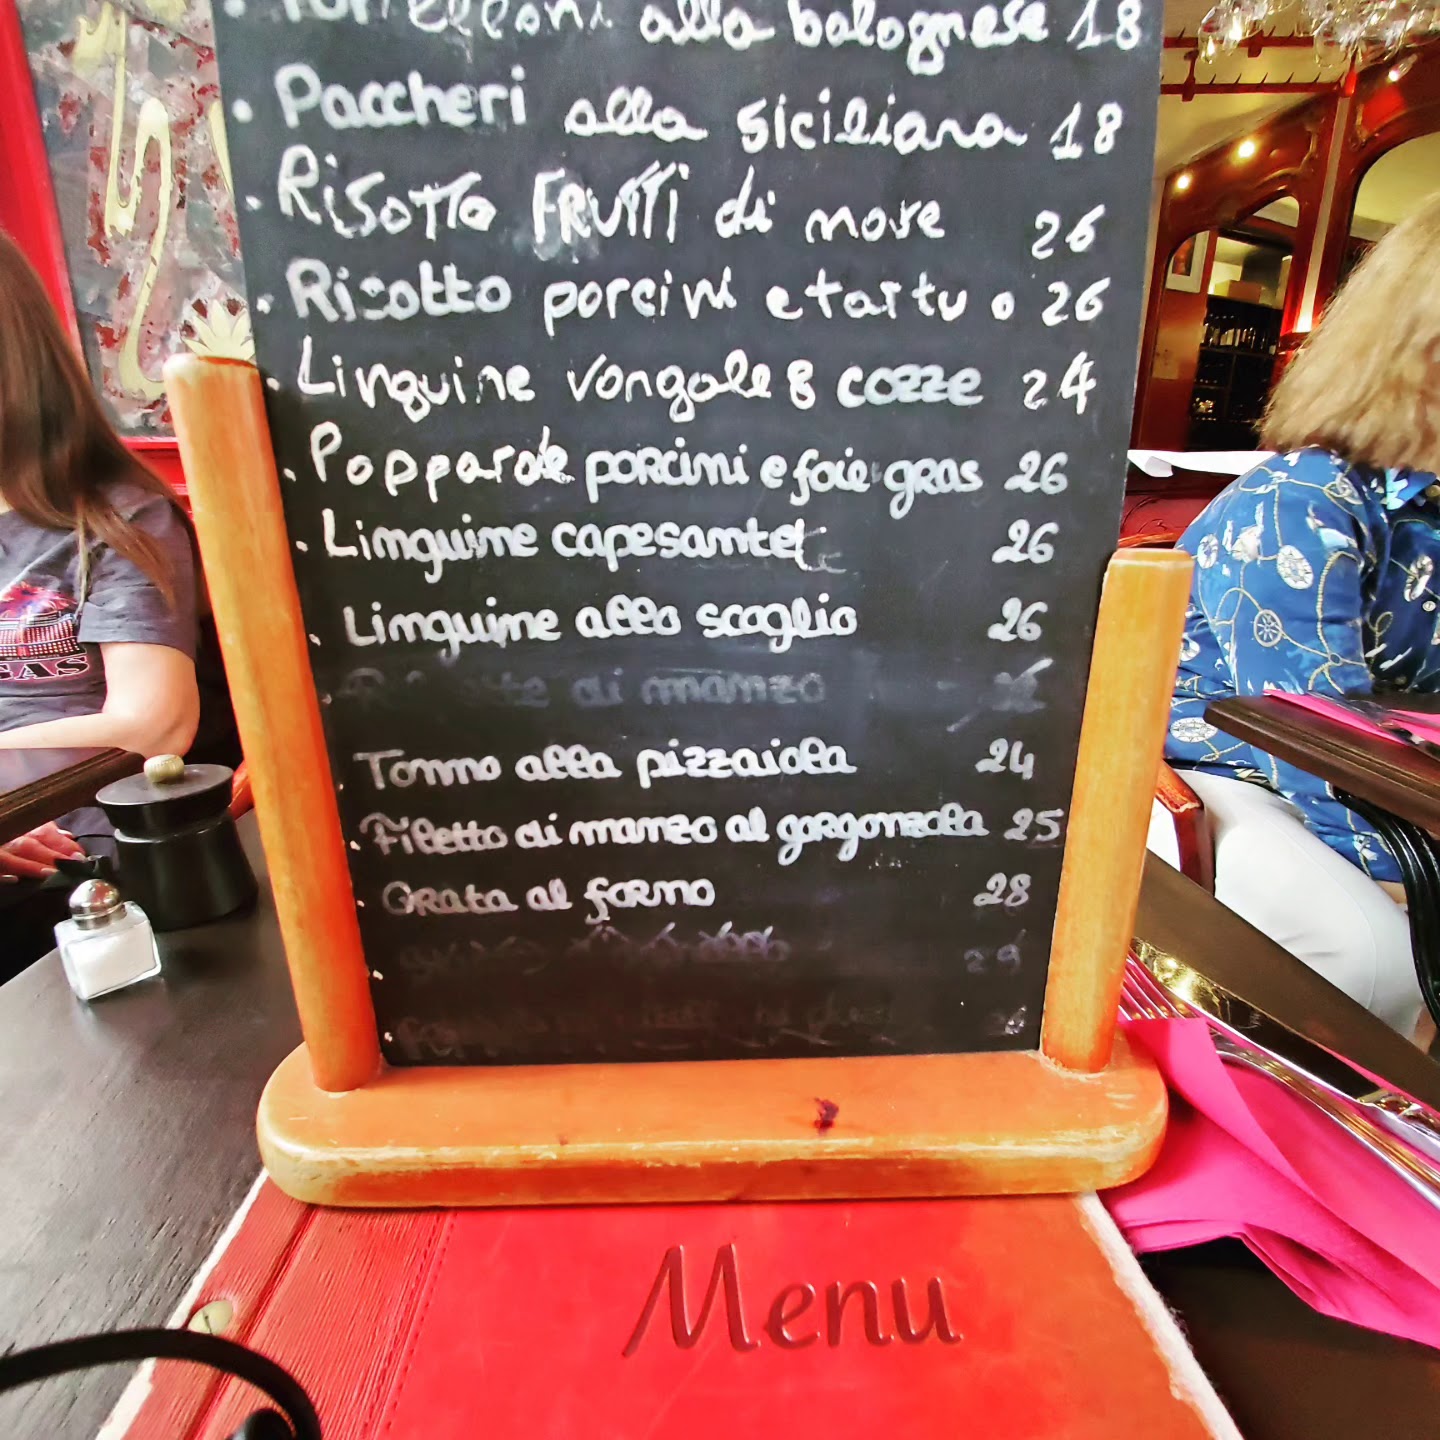 alla bolognese 18
Paccheri alla siciliana 18
Risotto FRUTTI di mare 26
Risotto porcini e tartu o 26
Linguine vongole & cozze 24
porcini e foie gras 26
Linguine capesante 26
Linguine allo scoglio 26
di manzo
Tonno alla pizzaiola 24
Filetto di manzo al gorgonzola 25
Orata al forno 28
29
Menu
GAS